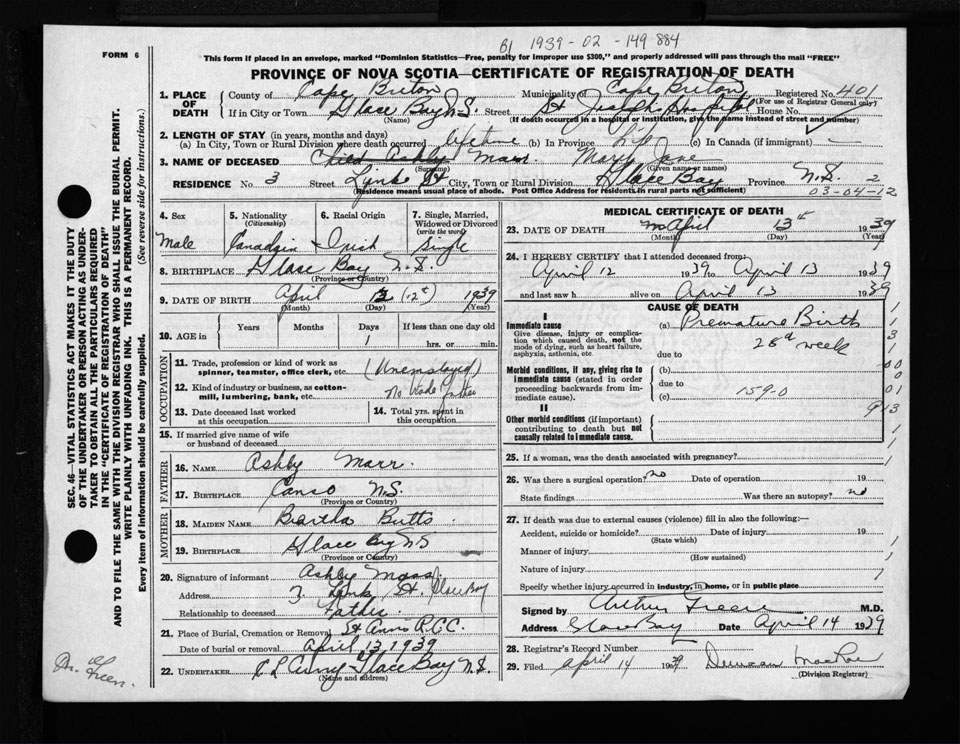 B1 1939-02-149 884
FORM 6
This form if placed in an envelope, marked "Dominion Statistics—Free, penalty for improper use $300," and properly addressed will pass through the mail "FREE"
PROVINCE OF NOVA SCOTIA—CERTIFICATE OF REGISTRATION OF DEATH
SEC. 46—VITAL STATISTICS ACT MAKES IT THE DUTY
OF THE UNDERTAKER OR PERSON ACTING AS UNDER-
TAKER TO OBTAIN ALL THE PARTICULARS REQUIRED
IN THE "CERTIFICATE OF REGISTRATION OF DEATH"
AND TO FILE THE SAME WITH THE DIVISION REGISTRAR WHO SHALL ISSUE THE BURIAL PERMIT.
WRITE PLAINLY WITH UNFADING INK. THIS IS A PERMANENT RECORD.
Every item of information should be carefully supplied. (See reverse side for instructions.)
1. PLACE OF DEATH County of Cape Breton Municipality of Cape Breton Registered No. 401
(For use of Registrar General only)
If in City or Town Glace Bay N.S. Street St Joseph Hospital House No.
(Name) (If death occurred in a hospital or institution, give the name instead of street and number)
2. LENGTH OF STAY (in years, months and days)
(a) In City, Town or Rural Division where death occurred lifetime (b) In Province Life (c) In Canada (if immigrant)
3. NAME OF DECEASED Child Ashby Marr. Mary Jane
(Surname) (Given name or names)
RESIDENCE No. 3 Street Links St City, Town or Rural Division Glace Bay Province N.S. 2
(Residence means usual place of abode. Post Office Address for residents in rural parts not sufficient) 03-04-12
4. Sex Male
5. Nationality (Citizenship) Canadian
6. Racial Origin Irish
7. Single, Married, Widowed or Divorced (write the word) Single
8. BIRTHPLACE Glace Bay N.S.
(Province or Country)
9. DATE OF BIRTH April 12 (12th) 1939
(Month) (Day) (Year)
10. AGE in Years Months Days 1 If less than one day hrs. or min.
OCCUPATION
11. Trade, profession or kind of work as spinner, teamster, office clerk, etc. (Unemployed)
12. Kind of industry or business, as cotton-mill, lumbering, bank, etc. No trade father
13. Date deceased last worked at this occupation
14. Total yrs. spent in this occupation
15. If married give name of wife or husband of deceased
FATHER
16. NAME Ashby Marr.
17. BIRTHPLACE Canso N.S.
(Province or Country)
MOTHER
18. MAIDEN NAME Beartha Butts
19. BIRTHPLACE Glace Bay N S
(Province or Country)
20. Signature of informant Ashby
Address 3 Links St. Glace Bay
Relationship to deceased Father
21. Place of Burial, Cremation or Removal St Anns R.C.C.
Date of burial or removal April 13, 1939
22. UNDERTAKER Glace Bay N.S.
(Name and address)
Dr. Green.
MEDICAL CERTIFICATE OF DEATH
23. DATE OF DEATH April 13th 1939
(Month) (Day) (Year)
24. I HEREBY CERTIFY that I attended deceased from:
April 12 1939 to April 13 1939
and last saw h alive on April 13 1939
CAUSE OF DEATH
I
Immediate cause (a) Premature Birth
Give disease, injury or complication which caused death, not the mode of dying, such as heart failure, asphyxia, asthenia, etc.
28th week
due to
Morbid conditions, if any, giving rise to immediate cause (stated in order proceeding backwards from immediate cause).
(b)
due to
(c) 159-0
II
Other morbid conditions (if important) contributing to death but not causally related to immediate cause.
25. If a woman, was the death associated with pregnancy?
26. Was there a surgical operation? no Date of operation 19
State findings Was there an autopsy? no
27. If death was due to external causes (violence) fill in also the following:—
Accident, suicide or homicide? Date of injury 19
(State which)
Manner of injury
(How sustained)
Nature of injury
Specify whether injury occurred in industry, in home, or in public place
Signed by Arthur M.D.
Address Glace Bay Date April 14 1939
28. Registrar's Record Number
29. Filed April 14 1939 Duncan MacRae
(Division Registrar)